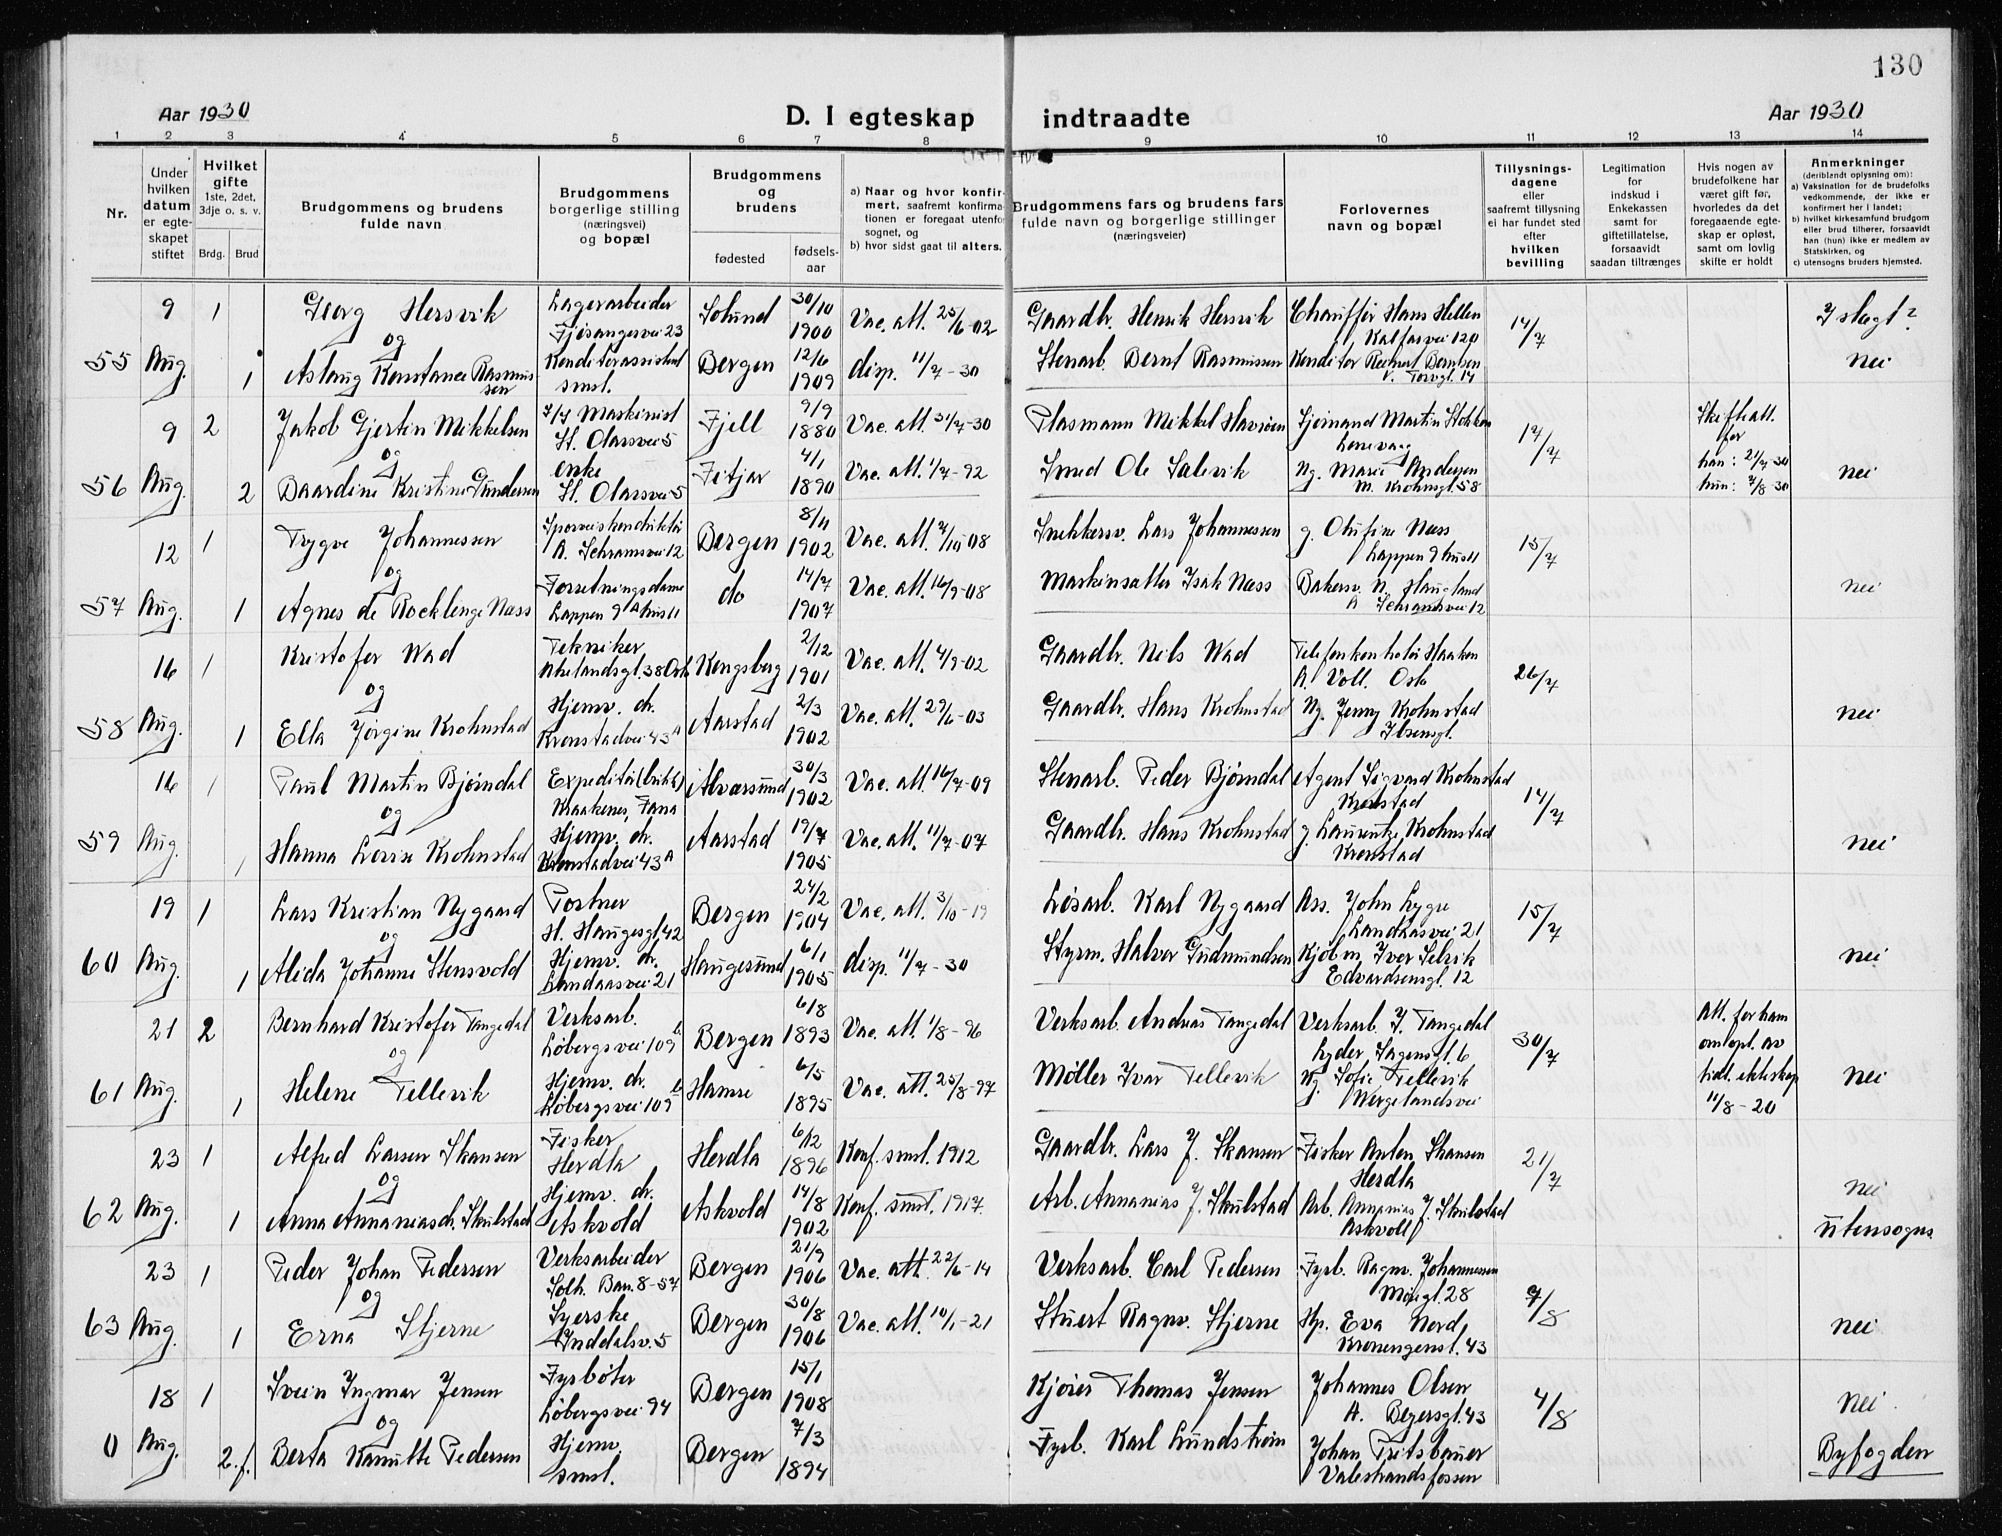 130
Aar 1930
D. I egteskap indtraadte
Aar 1930
1 2 3 4 5 6 7 8 9 10 11 12 13 14
Nr.
Under hvilken datum er egteskapet stiftet
Hvilket gifte 1ste, 2det, 3dje o. s. v.
Brdg. Brud
Brudgommens og brudens fulde navn
Brudgommens borgerlige stilling (næringsvei) og bopæl
Brudgommens og brudens
fødested
fødselsaar
a) Naar og hvor konfirmert, saafremt konfirmationen er foregaat utenfor sognet, og
b) hvor sidst gaat til alters.
Brudgommens fars og brudens fars fulde navn og borgerlige stillinger (næringsveier)
Forlovernes navn og bopæl
Tillysningsdagene eller saafremt tillysning ei har fundet sted efter hvilken bevilling
Legitimation for indskud i Enkekassen samt for giftetillatelse, forsaavidt saadan tiltrænges
Hvis nogen av brudefolkene har været gift før, hvorledes da det foregaaende egteskap er opløst, samt om lovlig skifte er holdt
Anmerkninger (deriblandt oplysning om):
a) Vaksination for de brudefolks vedkommende, der ikke er konfirmert her i landet;
b) hvilket kirkesamfund brudgom eller brud tilhører, forsaavidt han (hun) ikke er medlem av Statskirken, og
c) utensogns bruders hjemsted.
9 1 Georg Hersvik Lagerarbeider Solund 30/10 1900 Vac. att. 25/6-02 Gaardbr. Henrik Hersvik Chauffør Hans Hellen 14/7 I slegt?
og Fjøsangervei 23 Kalfarvei 120
55 Aug. 1 Aslaug Konstance Rasmussen Konditorassistent Bergen 12/6 1909 disp. 11/7-30 Stenarb. Bernt Rasmussen Konditor Berntsen nei
smst. V. Torvgt. 14
9 2 Jakob Gjertin Mikkelsen Maskinist Fjell 9/9 1880 Vac. att. 31/7-30 Plasmann Mikkel Havsøen Sjømand Martin 17/7 Skifteatt. for
og St. Olavsvei 5
56 Aug. 2 Baardine Kristine Gundersen enke Fitjar 4/1 1890 Vac. att. 1/7-92 Smed Ole Salevik Ng. Marie Andersen han: 21/7-30 nei
St. Olavsvei 5 M. Krohnsgt. 58 hun: 7/8-30
12 1 Trygve Johannessen Sporveiskonduktør Bergen 8/11 1902 Vac. att. 7/10-08 Snekkersv. Lars Johannessen g. Olufine Næss 15/7
og A. Schramsvei 12 Lappen 9 hus 11
57 Aug. 1 Agnes de Rocklenge Næss Forretningsdame do 14/7 1907 Vac. att. 16/9-08 Maskinsætter Isak Næss Bakersv. N. Haugland nei
Lappen 9A hus 11 A. Schramsvei 12
16 1 Kristofer Wad Tekniker Kongsberg 2/12 1901 Vac. att. 4/9-02 Gaardbr. Nils Wad Telefonkontrolør Haakon 26/7
og 38 Oslo A. Voll. Oslo
58 Aug. 1 Ella Jørgine Krohnstad Hjemv. dr. Aarstad 2/3 1902 Vac. att. 29/6-03 Gaardbr. Hans Krohnstad Ng. Jenny Krohnstad nei
Kronstadvei 43A Ibsensgt.
16 1 Paul Martin Bjørndal Expeditør (butikk) Alversund 30/3 1902 Vac. att. 16/7-09 Stenarb. Peder Bjørndal Agent Sigvard Krohnstad 14/7
og Kraakenes, Fana Kronstad
59 Aug. 1 Hanna Lovise Krohnstad Hjemv. dr. Aarstad 19/7 1905 Vac. att. 11/7-07 Gaardbr. Hans Krohnstad g. Laurentze Krohnstad nei
Kronstadvei 43A Kronstad
19 1 Lars Kristian Nygaard Portner Bergen 24/2 1904 Vac. att. 3/10-19 Løsarb. Karl Nygaard Ass. John Lygre 15/7
og H. Haugesgt. 42 Landaasvei 21
60 Aug. 1 Alida Johanne Stensvold Hjemv. dr. Haugesund 6/1 1905 disp. 11/7-30 Styrm. Halvor Gudmundsen Kjøbm. Iver Selvik nei
Landaasvei 21 Edvardsensgt. 12
21 2 Bernhard Kristofer Tangedal Verksarb. Bergen 6/8 1893 Vac. att. 1/8-96 Verksarb. Andreas Tangedal Verksarb. J. Tangedal 30/7 Att. for ham
og Løbergsvei 109b Lyder Sagensgt. 6 om opl. av
61 Aug. 1 Helene Tellevik Hjemv. dr. Hamre 6/5 1895 Vac. att. 25/8-97 Møller Ivar Tellevik Ng. Sofie Tellevik tidl. ekteskap nei
Løbergsvei 109b Wergelandsvei 11/8-20
23 1 Alfred Larsen Skansen Fisker Herdla 6/12 1896 Konf. smst. 1912 Gaardbr. Lars J. Skansen Fisker Anton Skansen 21/7
og Herdla Herdla
62 Aug. 1 Anna Annaniasdr. Skulstad Hjemv. dr. Askvold 14/8 1902 Konf. smst. 1917 Arb. Annanias J. Skulstad Arb. Annanias J. Skulstad nei
Askvold Askvoll utensogns
23 1 Peder Johan Pedersen Verksarbeider Bergen 21/9 1906 Vac. att. 22/6-14 Verksarb. Carl Pedersen Fyrb. Ragnv. Johannessen 7/8
og Solh. Ban. 8-57 28
63 Aug. 1 Erna Stjerne Syerske Bergen 30/8 1906 Vac. att. 10/1-21 Stuert Ragnv. Stjerne Hp. Eva Nord nei
Inndalsv. 5 43
18 1 Svein Ingmar Jensen Fyrbøter Bergen 15/1 1908 Kjører Thomas Jensen Johannes Olsen 4/8 nei
og Løbergsvei 94 A. Beyersgt. 43
0 Aug. 2. f. Berta Kamutte Pedersen Hjemv. Bergen 7/3 1894 Fyrb. Karl Lundstrøm Johan Byfogden
smst. Valestrandsfossen